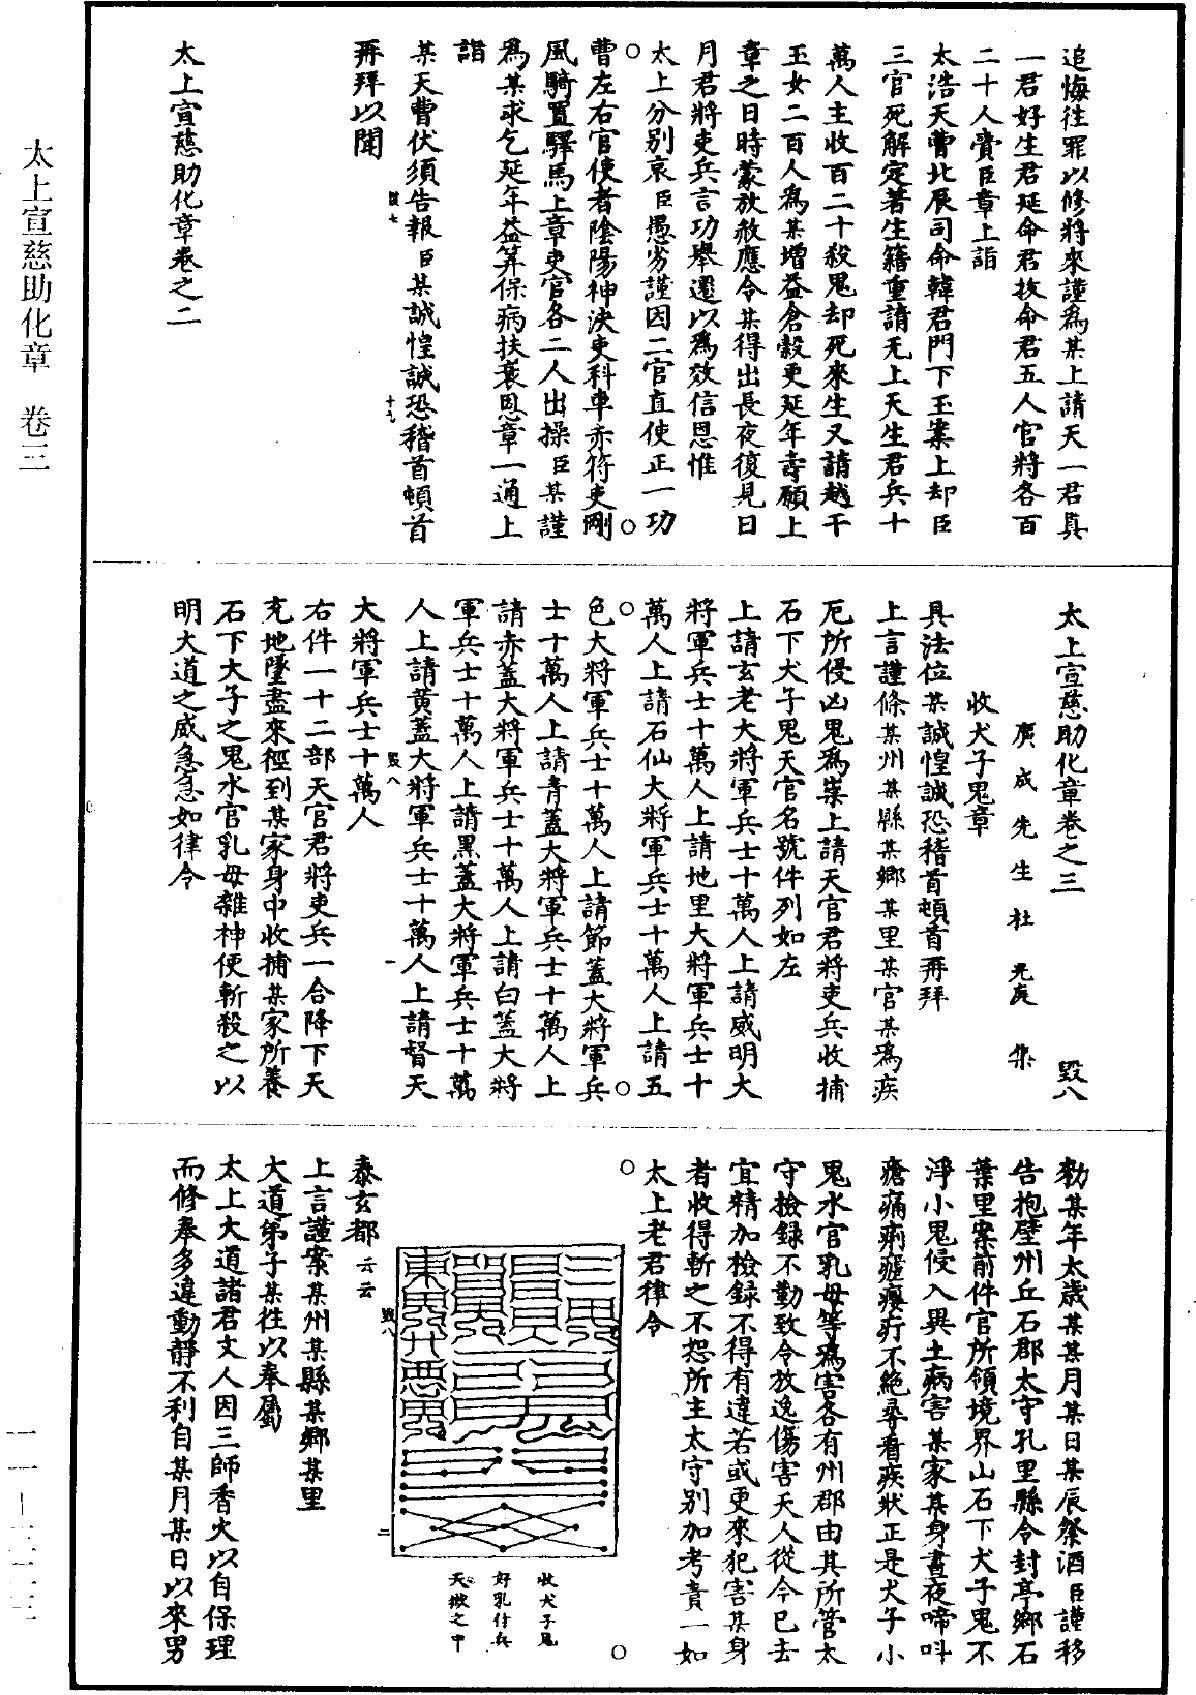 追悔往罪以修將來謹爲某上請天一君真
一君好生君延命君拔命君五人官將各百
二十人賫臣章上詣
太浩天曹北辰司命韓君門下玉案上却臣
三官死解定著生籍重請无上天生君兵十
萬人主收百二十殺鬼却死來生又請越千
玉女二百人爲某增益倉穀更延年壽願上
章之日時蒙放赦應令某得出長夜復見日
月君將吏兵言功舉遷以爲效信恩惟
太上分別哀臣愚劣謹因二官直使正一功
曹左右官使者陰陽神決吏科車赤符吏剛
風騎置驛馬上章吏官各二人出操臣某謹
爲某求乞延年益算保病扶衰恩章一通上
詣
某天曹伏須告報臣某誠惶誠恐稽首頓首
毀七 十九
再拜以聞
太上宣慈助化章卷之二
太上宣慈助化章卷之三 毀八
廣成先生杜光庭集
收犬子鬼章
具法位某誠惶誠恐稽首頓首再拜
上言謹條某州某縣某鄉某里某官某爲疾
厄所侵凶鬼爲祟上請天官君將吏兵收捕
石下犬子鬼天官名號件列如左
上請玄老大將軍兵士十萬人上請威明大
將軍兵士十萬人上請地里大將軍兵士十
萬人上請石仙大將軍兵士十萬人上請五
色大將軍兵士十萬人上請節蓋大將軍兵
士十萬人上請青蓋大將軍兵士十萬人上
請赤蓋大將軍兵士十萬人上請白蓋大將
軍兵士十萬人上請黑蓋大將軍兵士十萬
人上請黃蓋大將軍兵士十萬人上請督天
毀八 一
大將軍兵士十萬人
右件一十二部天官君將吏兵一合降下天
充地墜盡來徑到某家身中收捕某家所養
石下犬子之鬼水官乳母雜神便斬殺之以
明大道之威急急如律令
勑某年太歲某某月某日某辰祭酒臣謹移
告抱壁州丘石郡太守孔里縣令封亭鄉石
葉里案前件官所領境界山石下犬子鬼不
淨小鬼侵入異土病害某家某身晝夜啼呌
瘡痛痢瘧癭疔不絶尋看疾狀正是犬子小
鬼水官乳母等爲害各有州郡由其所管太
守檢録不勤致令放逸傷害天人從今已去
宜精加檢録不得有違若或更來犯害某身
者收得斬之不恕所主太守別加考責一如
太上老君律令
收犬子鬼
好乳付兵
天獄之中
泰玄都云云
毀八 二
上言謹案某州某縣某鄉某里
大道弟子某往以奉屬
太上大道諸君丈人因三師香火以自保理
而修奉多違動靜不利自某月某日以來男
太上宣慈助化章 卷三
一一—三二三